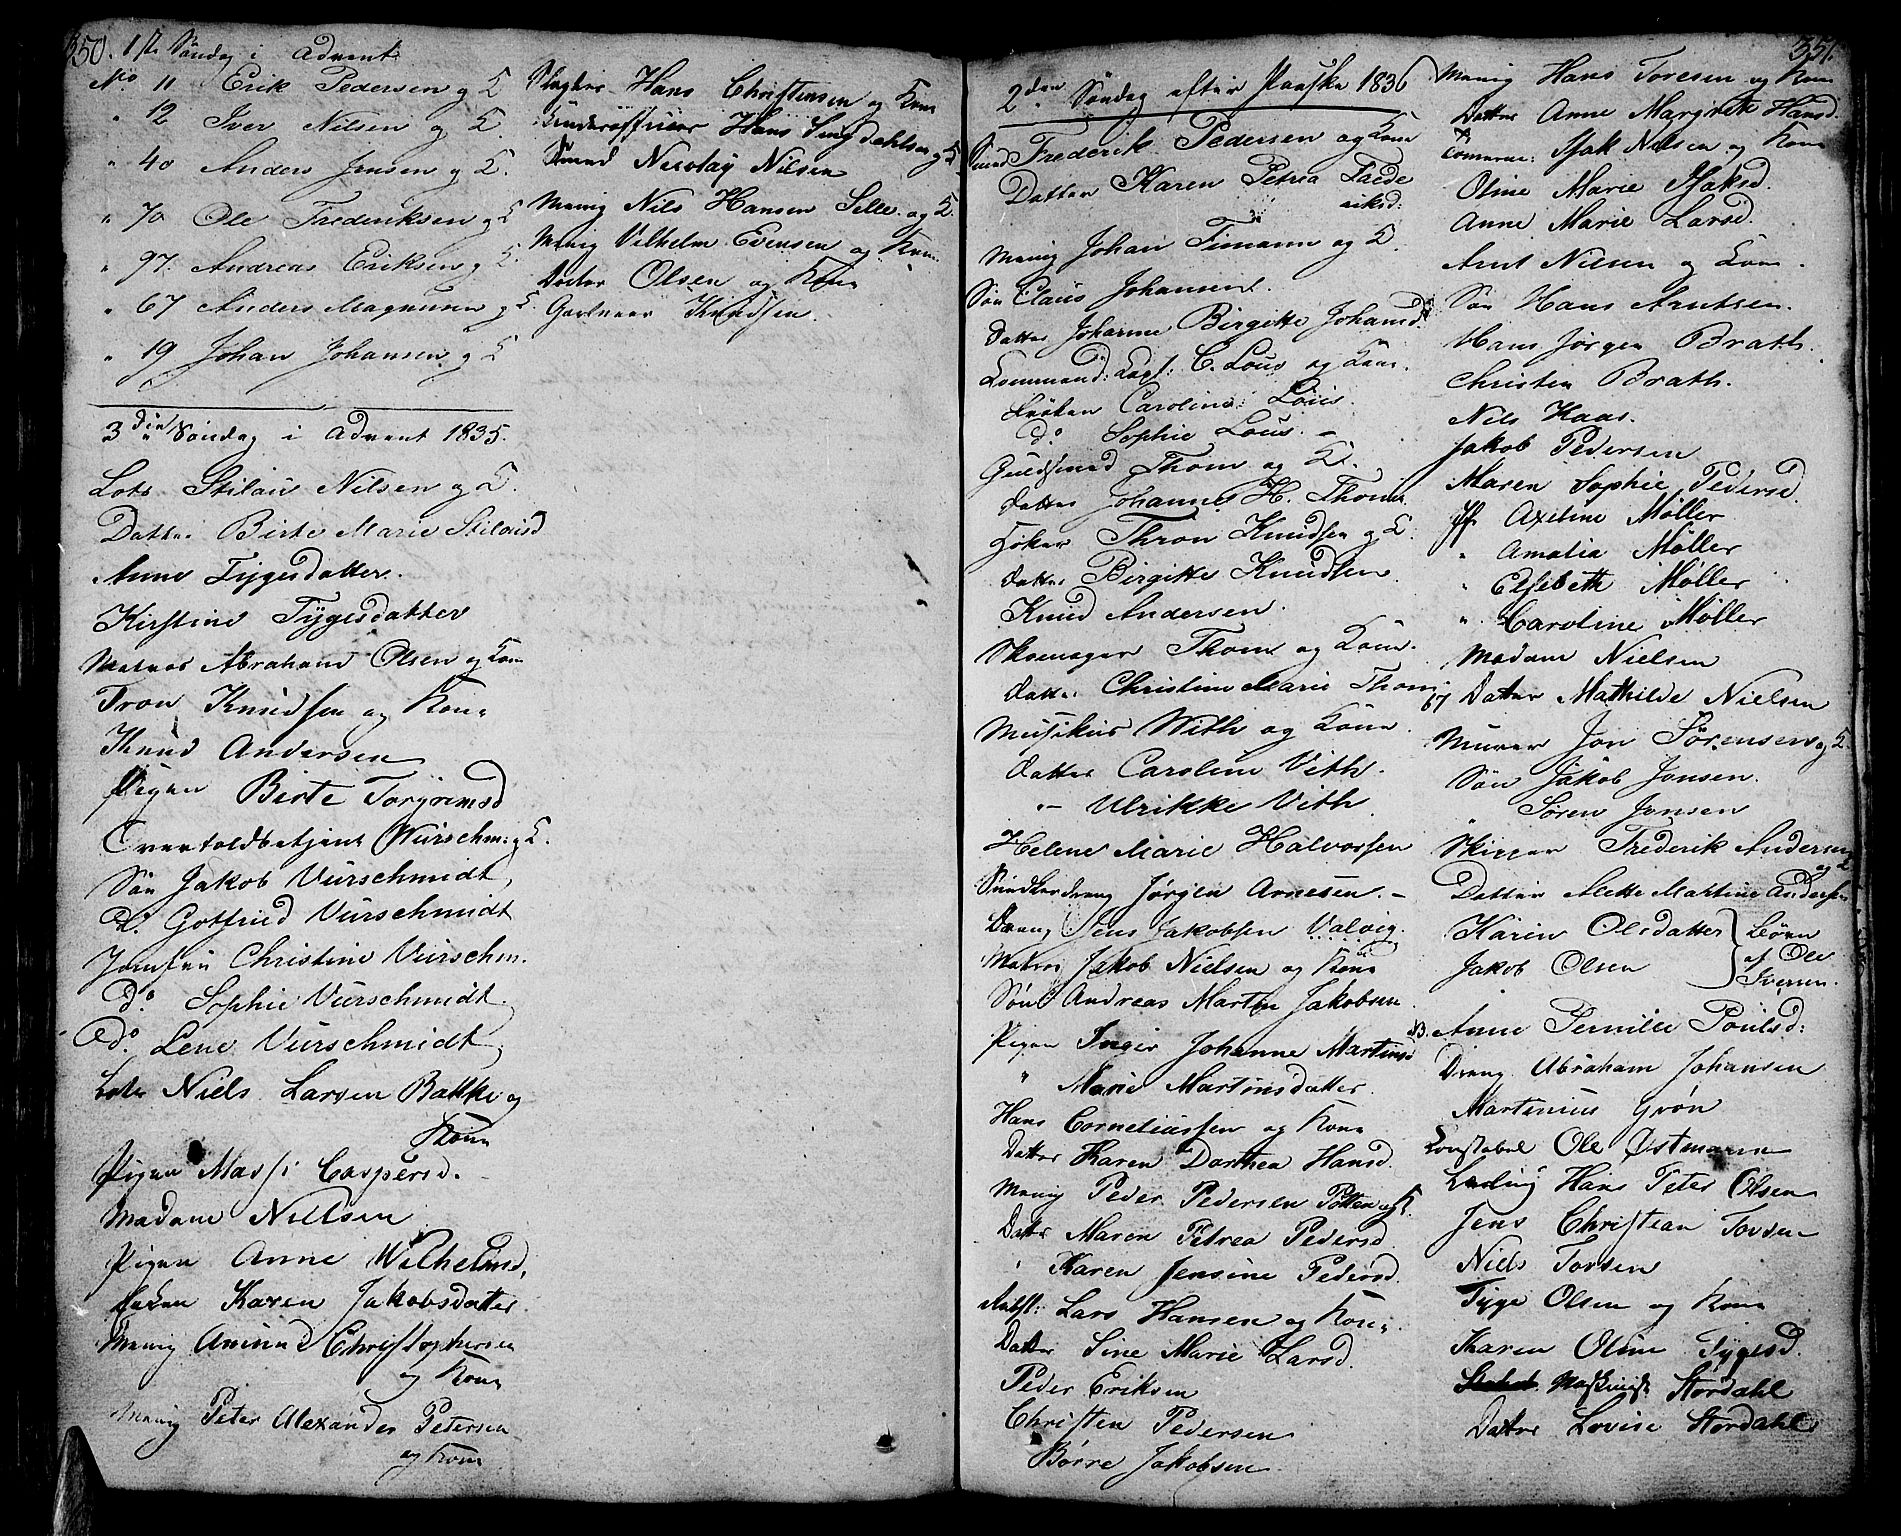 350.
1ste Søndag i Advent
No. 11 Erik Pedersen og K
" 12 Iver Nilsen og K.
" 40 Anders Jensen og K.
" 70 Ole Frederiksen og K
" 97. Andreas Eriksen og K.
" 67 Anders Magnusen og K
" 19 Johan Johansen og K
3die Søndag i Advent 1835.
Lots Stilau Nilsen og K.
Datter Birte Marie Stilausd
Anne Tygesdatter.
Kirstine Tygesdatter
Matros Abraham Olsen og Kone
Tron Knudsen og Kone
Knud Andersen
Pigen Birte Torgrimsd
Overtoldbetjent Wurschm: og K.
Søn Jakob Vurschmidt
do Gotfried Vurschmidt
Jomfru Christine Vurschm.
do. Sophie Vurschmidt.
do. Lene Vurschmidt
Lots Niels Larsen Bakke og
Kone
Pigen Massi Caspersd.
Madame Nielsen
Pigen Anne Wilhelmsd.
Karen Jakobsdatter
Menig Amund Christophersen
og Kone
Menig Peter Alexander Petersen
og Kone
Slagter Hans Christensen og Kone
Underofficer Hans og K
Smed Nicolay Nilsen
Menig Nils Hansen Selle og K.
Menig Vilhelm Evensen og Kone
Olsen og Kone
Gartneer Knudsen.
351.
2den Søndag efter Paaske 1836
Smed Frederik Pedersen og Kone
Datter Karen Petrea Frede
riksd:
Menig Johan Timann og K.
Søn Claus Johansen.
Datter Johanne Birgitte Johansd.
Command: Capt: C. Lous og Kone.
Frøken Caroline Lous.
do Sophie Lous.
Guldsmed Thom og K.
Datter Johanne H. Thom.
Høker Thron Knudsen og K.
Datter Birgitte Knudsen
Knud Andersen.
Skomager Thom og Kone.
Datter Christine Marie Thom
Musikus With og Kone
Datter Caroline Vith.
" - Ulrikke Vith
Helene Marie Halvorsen
Snedkerdreng Jørgen Arnesen. -
Dreng Jens Jakobsen Valvig.
Matros Jakob Nielsen og Kone
Søn Andreas Martin Jakobsen
Pigen Inger Johanne Martinsd
" Marie Martinsdatter.
Hans Corneliussen og Kone
Datter Karen Dorthea Hansd.
Menig Peder Pedersen Potten og K.
Datter Maren Petrea Pedersd.
Karen Jensine Pedersd.
Lars Hansen og Kone
Datter Sine Marie Larsd.
Peder Eriksen
Christen Pedersen
Børre Jakobsen.
Menig Hans Toresen og Kone
Datter Anne Margrethe Hansd.
Tømmerm: Isak Nilsen og Kone
Oline Marie Isaksd.
Anne Marie Larsd.
Arnt Nilsen og Kone.
Søn Hans Arntsen.
Hans Jørgen Brath.
Christen Brath.
Nils Haas.
Jakob Pedersen
Maren Sophie Pedersd.
Jfr Axeline Møller
" Amalia Møller
" Elsebeth Møller
" Caroline Møller
Madame Nielsen
67 Datter Mathilde Nielsen
Murer Jon Sørensen og K.
Søn Jakob Jonsen.
" Søren Jonsen
Skipper Frederik Andersen
og K
Datter Mette Martine Andersen
Karen Olsdatter } Børn
Jakob Olsen } af Ole
Iversen.
NB. Anne Pernille Poulsd:
Dreng Abraham Johansen
Martinius Grøn
Constabel Ole Østmann
Hans Peter Olsen
Jens Christian Torsen
Niels Torsen
Tyge Olsen og Kone
Karen Oline Tygesd.
Maskinist Stordahl
Datter Lovise Stordahl.